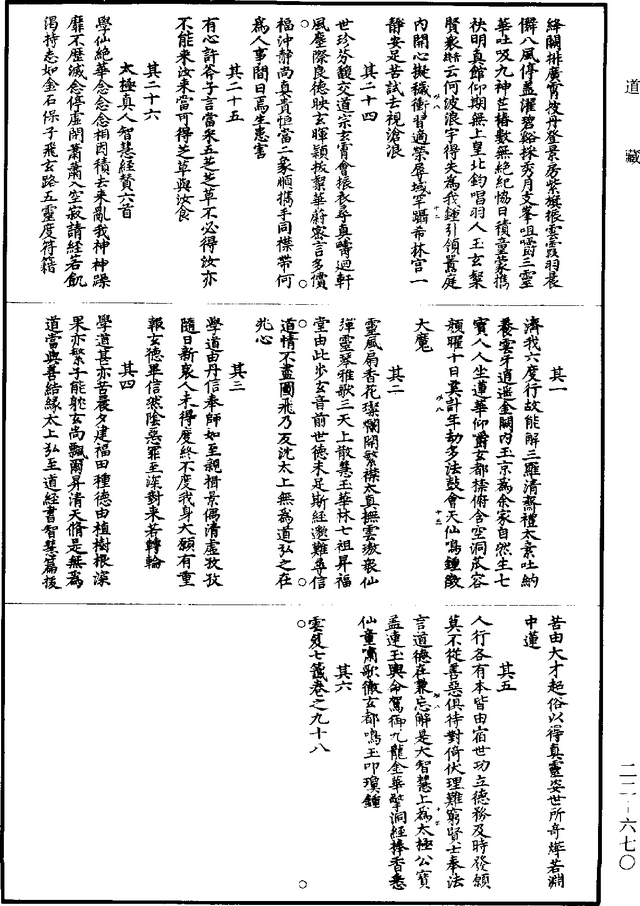 道藏
絳闕排廣霄披丹登景房紫旗振雲霞羽晨
撫八風停蓋濯碧谿採秀月支峯咀嚼三靈
華吐吸九神芒椿數無絕紀協日積童蒙携
袂明真館仰期無上皇北鈞唱羽人玉玄粲
賢衆結云何波浪宇得失為我鍾引領囂庭
內開心擬穢衝習適榮辱域罕躡希林宮一
靜安足苦試去視滄浪
其二十四
世珍芬馥交道宗玄霄會振衣尋真疇迴軒
風塵際良德映玄暉穎拔粲華蔚密言多償
福沖靜尚真貴恒當二象順携手同襟帶何
為人事間日焉生患害
其二十五
有心許斧子言當采五芝芝草不必得汝亦
不能來汝來當可得芝草與汝食
其二十六
太極真人智慧經贊六首
學仙絕華念念念相因積去來亂我神神躁
靡不歷滅念停虛閑蕭蕭入空寂請經若飢
渴持志如金石保子飛玄路五靈度符籍
其一
濟我六度行故能解三羅清齋禮太素吐納
養雲牙逍遥金闕內玉京為余家自然生七
寶人人坐蓮華仰嚼玄都㮈俯含空洞瓜容
顏曜十日奚計年劫多法鼓會天仙鳴鍾徵
大魔
其二
靈風扇香花璨爛開繁襟太真撫雲璈衆仙
彈靈琴雅歌三天上散慧玉華林七祖昇福
堂由此步玄音前世德未足斯經邈難尋信
道情不盡圖飛乃反沈太上無為道弘之在
兆心
其三
學道由丹信奉師如至親揖景偶清虛孜孜
隨日新衆人未得度終不度我身大願有重
報玄德畢信然陰惡罪至深對來若轉輪
其四
學道甚亦苦晨夕建福田種德由植樹根深
果亦繁子能躭玄尚飄爾昇清天脩是無為
道當與善結緣太上弘至道經書智慧篇拔
苦由大才超俗以得真靈姿世所奇燁若淵
中蓮
其五
人行各有本皆由宿世功立德務及時發願
莫不從善惡俱待對倚伏理難窮賢士奉法
言道德在兼忘解是大智慧上為太極公寶
蓋連玉輿命駕御九龍金華擎洞經捧香悉
仙童嘯歌徹玄都鳴玉叩瓊鍾
其六
雲笈七籤卷之九十八
二二-六七〇